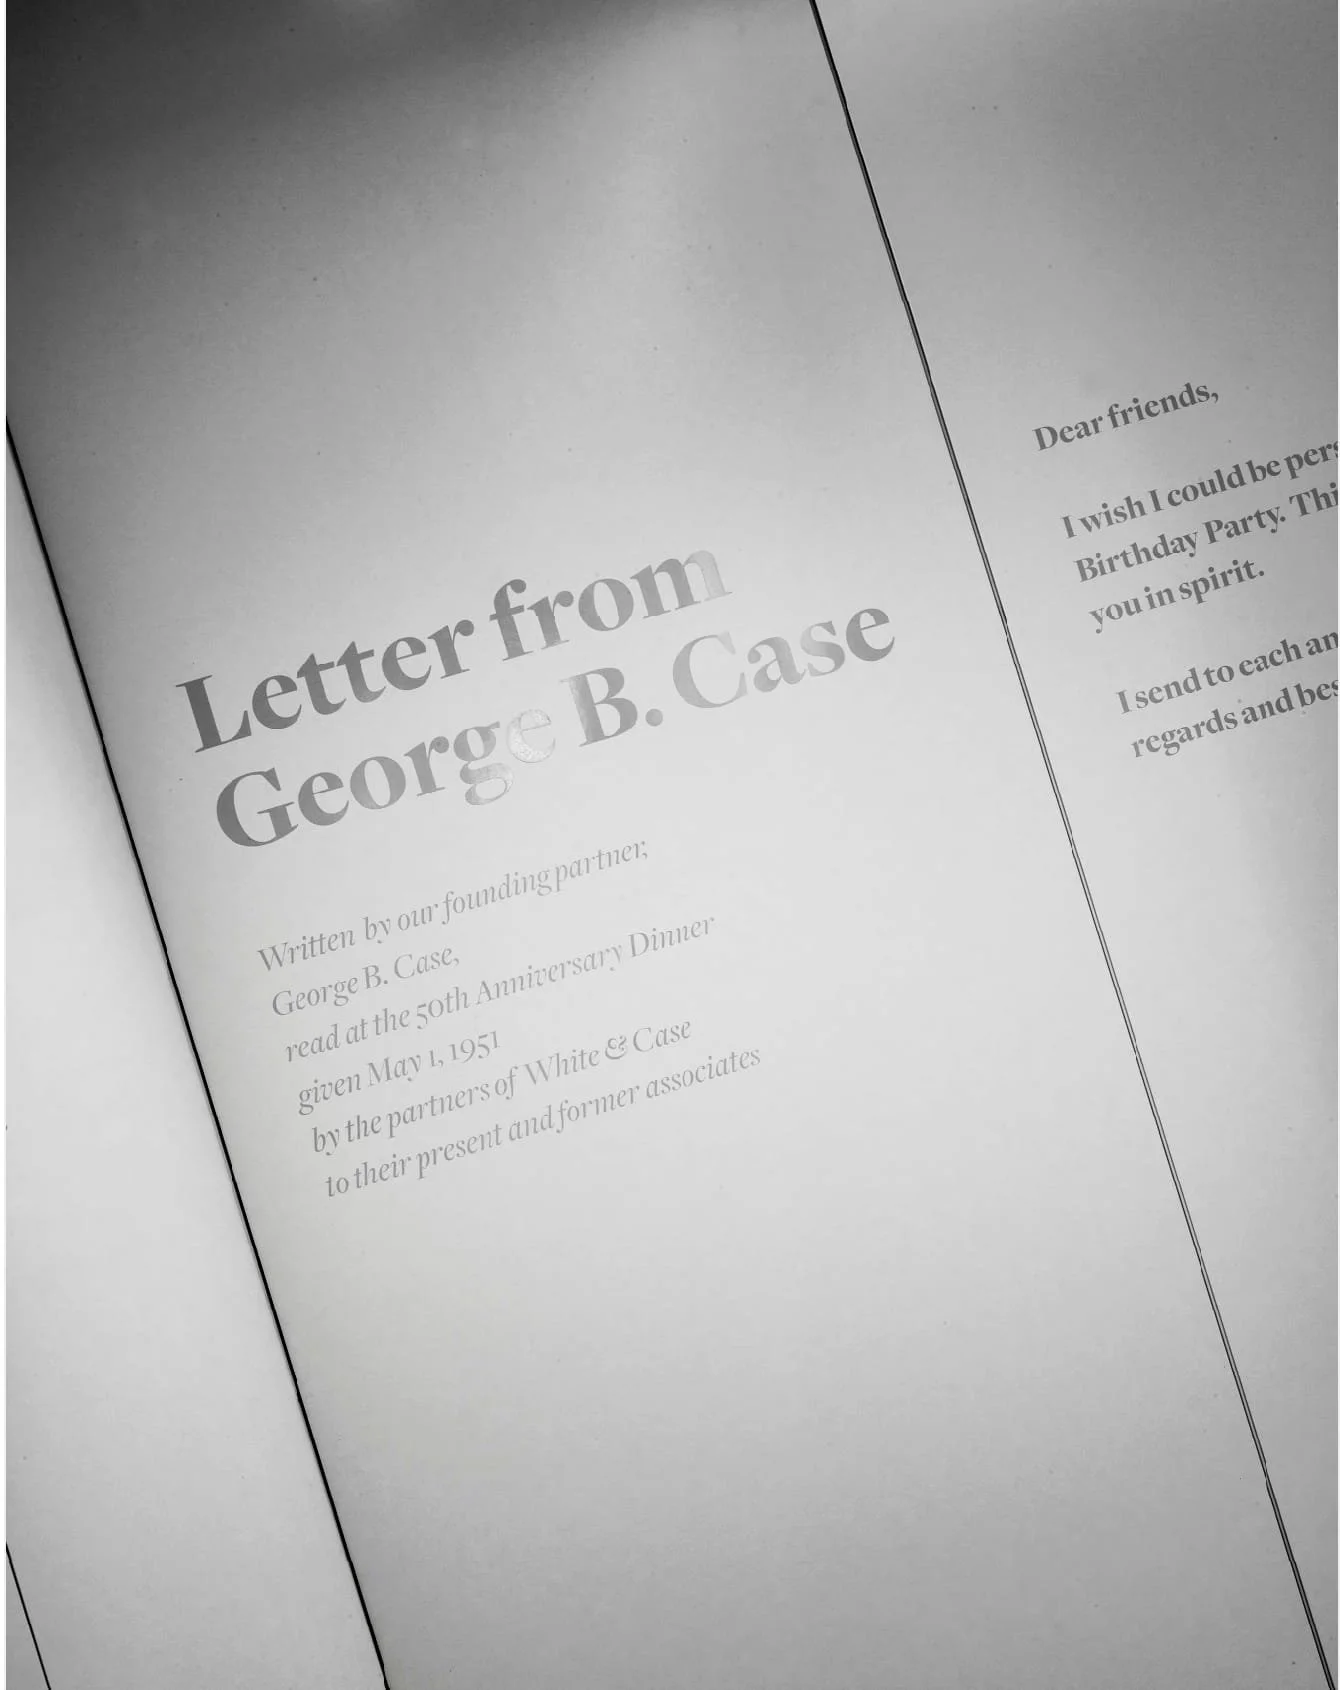 Letter from
George B. Case
Written by our founding partner,
George B. Case,
read at the 50th Anniversary Dinner
given May 1, 1951
by the partners of White & Case
to their present and former associates
Dear friends,
I wish I could be
Birthday Party.
you in spirit.
I send to each
regards and